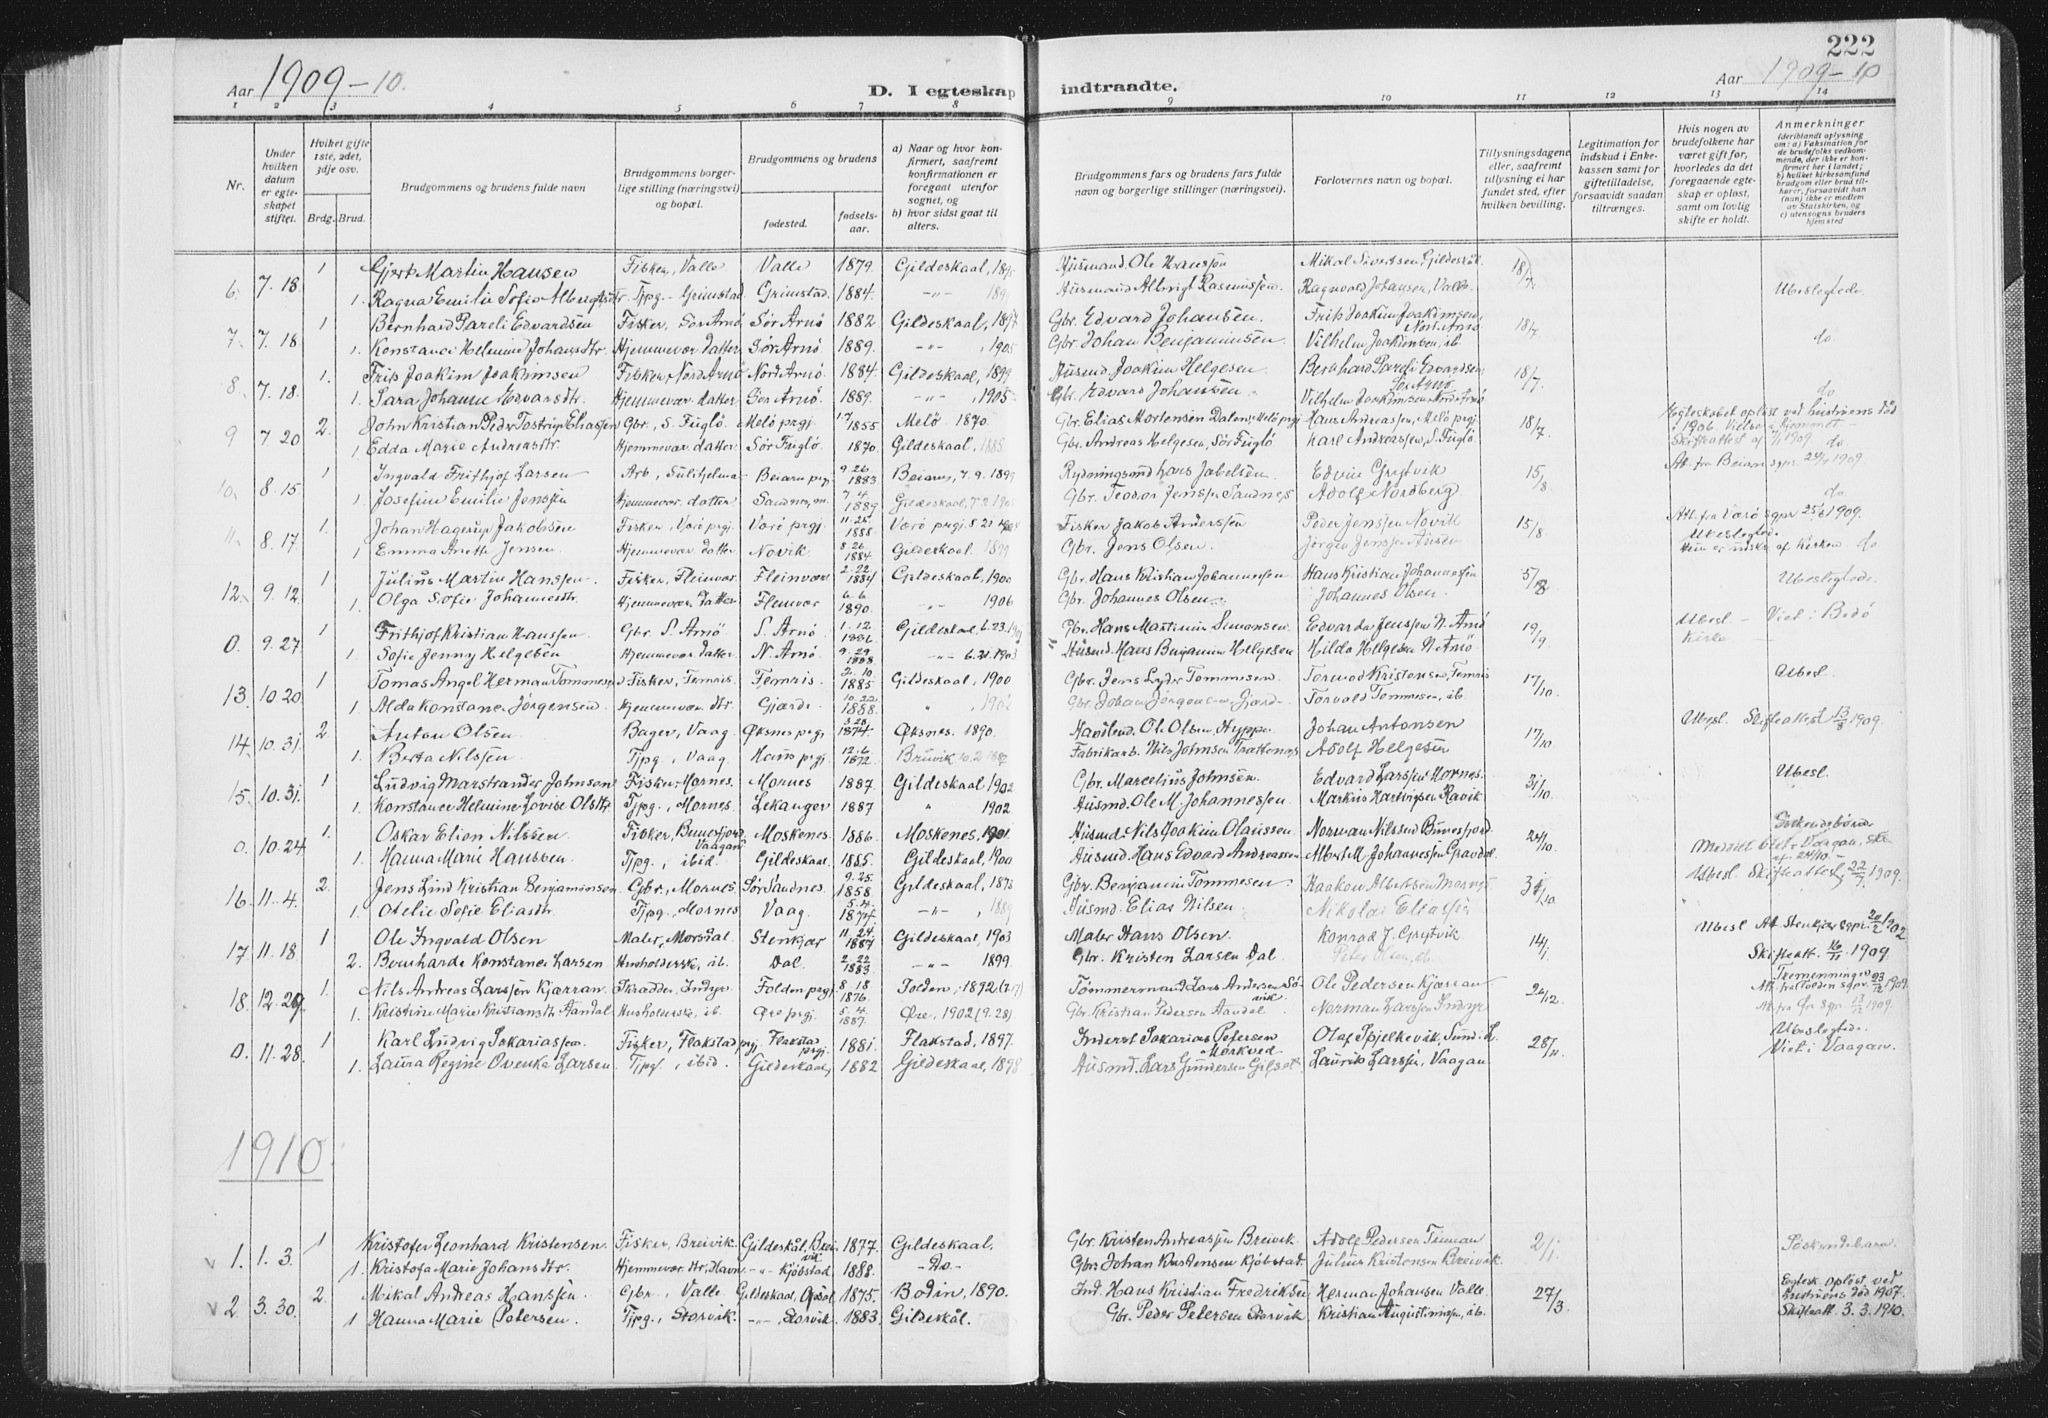 222
Aar 1909-10.
D. I egteskap indtraadte.
Aar 1909-10
1 2 3 4 5 6 7 8 9 10 11 12 13 14
Nr.
Under hvilken datum er egteskapet stiftet.
Hviket gifte 1ste, 2det, 3dje osv.
Brdg. Brud.
Brudgommens og brudens fulde navn
Brudgommens borgerlige stilling (næringsvei) og bopæl.
Brudgommens og brudens
fødested.
fødselsaar.
a) Naar og hvor konfirmert, saafremt konfirmationen er foregaat utenfor sognet, og b) hvor sidst gaat til alters.
Brudgommens fars og brudens fars fulde navn og borgerlige stillinger (næringsvei).
Forlovernes navn og bopæl.
Tillysningsdagene eller, saafremt tillysning ei har fundet sted, efter hvilken bevilling.
Legitimation for indskud i Enkekassen samt for giftetilladelse, forsaavidt saadan tiltrænges.
Hvis nogen av brudefolkene har været gift før, hvorledes da det foregaaende egteskap er opløst, samt om lovlig skifte er holdt.
Anmerkninger (deriblandt oplysning om: a) Vaksination for de brudefolks vedkommende, der ikke er konfirmert her i landet; b) hvilket kirkesamfund brudgom eller brud tilhører, forsaavidt han (hun) ikke er medlem av Statskirken, og c) utensogns bruders hjemsted
6. 7.18 1 Gjert Martin Hansen Fisker, Valle Valle 1879. Gildeskaal, Husmand. Ole Hanssen Mikal Sivertsen, Gildeskål 18/7
1. Ragna Emilie Sofie Tjpg. - Grimstad Grimstad. 1884. -"- Husmand Albrigt Rasmussen. Ragnvald Johansen, Valle. Ubeslegtede
7 7.18 1 Bernhard Pareli Edvardsen Fisker, Sør Arnø Sør Arnø 1882 Gildeskaal, 1897 Gbr. Edvard Johansen. Frits Joakim Joakimsen, Nord Arnø 18/7
1. Konstance Helmine Johansdtr. Hjemmevær. datter Sør Arnø. 1889. -"- , 1905 Gbr. Johan Benjaminsen. Vilhelm Joakimsen, ib. do.
8 7.18. 1. Frits Joakim Joakimsen Fisker, Nord Arnø Nord Arnø. 1884. Gildeskaal, 1899 Husmd. Joakim Helgesen. Bernhard Pareli Edvardsen, Sør Arnø 18/7.
1. Sara Johanne Edvarsdtr. Hjemmevær. datter Sør Arnø. 1889. -"- , 1905. Gbr. Edvard Johansen. Vilhelm Joakimsen Nord Arnø do
9 7 20 2. John Kristian Peder Tostrup Eliassen Gbr., S. Fuglø Melø prgj. 1855 Melø 1870. Gbr. Elias Mortensen Dalen, Melø prgj Hans Andreassen, Melø prgj. 18/7. Egteskabet opløst ved hustruens død i 1906.
1. Edda Marie Andreasdtr. Hjemmevær. datter Sør Fuglø 1870. Gildeskaal, 1885 Gbr. Andreas Helgesen, Sør Fuglø Karl Andreassen, S. Fuglø. Skifteattest af 1909. do.
10. 8.15 1 Ingvald Frithjof Larsen Arb., Sulitjelma Beiarn prgj 9.26 1883 Beiarn, 7.9.1899 Rydningsmd Lars Jakobsen. Edvin Grytvik 15/8 At. fra Beiarn sgpr. 1909.
1 Josefine Emilie Jenssen Hjemmevær. datter. Sandnes, 7.4 1889 Gildeskaal, Gbr. Teodor Jenssen Sandnes Adolf Nordberg do.
11. 8.17 1. Johan Hagerup Jakobsen Fisker, Værø prgj. Værø prgj. 11.25 1888 Værø prgj. Fisker Jakob Anderssen Peder Jenssen Novik 15/8 At. fra Værø sgpr 1909. Ubeslegtede.
1 Emma Anette Jensen. Hjemmevær datter Novik 8.26 1884 Gildeskaal. 1899 Gbr. Jens Olsen. Jørgen Jenssen do
12. 9.12. 1 Julius Martin Hanssen Fisker, Fleinvær. Fleinvær 2.22 1884 Gildeskaal, 1900 Gbr. Hans Kristian Johannessen Hans Kristian Johannessen 5/ Ubeslegtede.
1. Olga Sofie Johannesdtr. Hjemmevær. datter Fleinvær 6.6 1890. -"- 1906 Gbr. Johannes Olsen. Johannes Olsen.
0. 9.27. 1 Frithjof Kristian Hanssen Gbr. S. Arnø S. Arnø. 1.12 1886 Gildeskaal, 6.23.19 Gbr. Hans Martinus Simonsen. Edvarda Jenssen N. Arnø 19/9 Ubesl. - Viet i Bodø Kirke. -
1. Sofie Jenny Helgesen Hjemmevær. datter N. Arnø. 9.29 1888 -"- 6.21.1903 Husmd. Hans Benjamin Helgesen Hilda Helgesen N. Arnø
13. 10.20 1 Tomas Angel Herman Tommesen Fisker, Femris. Femris. 2.10 1885 Gildeskaal, 1900 Gbr. Jens Lyder Tommesen Tormod Kristensen, Femris 17/10. Ubesl.
1. Alda Konstance Jørgensen. Hjemmevær. dtr. Gjærde. 10.22 1888. " 1902 Gbr. Johan Torvald Tommesen, ib.
14. 10.31. 2 Anton Olsen. Bager, Vaag Øksnes prgj. 3.28 1874. Øksnes. 1890. Ole Olsen, Johan Antonsen 17/10 Ubesl. Skifteattest 13/3 1909.
1 Berta Nilssen. Tjpg., Vaag. prgj. 12.6 1872 Fabrikarb. Nils Johnsen Adolf Helgesen
15. 10.31. 1 Ludvig Marstrander Johnsen Fisker. Mornes. Mornes 1887. Gildeskaal, 1902 Gbr. Marcelius Johnsen. Edvard Larssen Mornes. 31/10 Ubesl.
1. Konstance Helmine Lovise Olsdtr. Tjpg., Mornes. Lekanger 1887 " 1902. Husmd. Ole M. Johannessen Markus Hartvigsen Ravik
0. 10.24. 1. Oskar Elion Nilssen Fisker, Bunesfjord Vaagan Moskenes. 1886. Moskenes, 1901. Husmd. Nils Joakim Olaussen. Norman Nilssen Bunesfjord. 24/10. Søskendebørn
1. Hanna Marie Hanssen Tjpg., ibid. Gildeskaal. 1885. Gildeskaal, 1900 Husmd. Hans Edvard Andreassen Albert M. Johannessen Gravdal.
16. 11.4. 2. Jens Lind Kristian Benjaminsen Gbr., Mornes Sør Sandnes. 9.25. 1858 Gildeskaal, 1873 Gbr. Benjamin Tommesen Haakon Albertsen 31/10 Ubesl. Skifteattest, 22/7 1909.
1. Otelie Sofie Eliasdtr. Tjpg., Mornes Vaag. 5.4 1874. -"- , 1889 Husmd. Elias Nilsen. Nikolai Eliassen
17. 11.18. 1 Ole Ingvald Olsen Maler, Morsdal. Stenkjær 11.24 1884 Gildeskaal, 1903 Maler Hans Olsen. Konrad J. Grytvik 14/ Ubesl At. Stenkjær sgpr. 20/2 1902
2. Bernharde Konstance Larsen Husholderske, ib. Dal. 2.22 1883 -"- 1899. Gbr. Kristen Larsen Dal. Peter Olsen, ib. Skifteatt. 16/11. 1909.
18. 12.29. 1. Nils Andreas Larssen Kjærran Skrædder, Indyr Folden prgj. 8.18 1876. Folden, 1892 Tømmermand Lars Andersen Ole Pedersen Kjærran 26/12. Tremenninger
1. Kristine Marie Kristiansdtr Aandal Husholderske, ib. Øre prgj. 5.4. 1887. Øre, 1902 (9.28). Gbr. Kristian Pedersen Aandal. Norman Larssen Indyr
0. 11.28. 1 Karl Ludvig Sakariassen. Fisker, Flakstad prgj. Flakstad prgj. 1881. Flakstad, 1897. Inderst Sakarias Petersen Mørkved Olaf Spjelkevik, Sund i L. 28/11. Ubeslegtede. Viet i Vaagan.
1. Laura Regine Ovenka Larsen. Tjpg., ibid. Gildeskaal, 1882 Gildeskaal, 1898 Husmd. Lars Gundersen Laurits Larssen, Vaagan
1910.
v 1. 1.3. 1 Kristofer Leonhard Kristensen. Fisker, Breivik. Gildeskål, Breivik 1877. Gildeskaal, Gbr. Kristen Andreassen Breivik. Adolf Pedersen 2/1. Søskendebarn.
1. Kristofa Marie Johansdtr. Hjemmevær. dtr. Havn -"- Kjøbstad 1888. -Do- Gbr. Johan Kristensen Kjøbstad. Julius Kristensen Breivik
v 2 3.30. 2. Mikal Andreas Hanssen Gbr., Valle Gildeskaal, 1875. Bodin, 1890. Ind. Hans Kristian Fredriksen Herman Johansen Valle. 27/3. Egtesk. opløst ved hustruens død 1907.
1 Hanna Marie Petersen. Tjpg., Storvik. -"- Storvik. 1883 Gildeskål. Gbr. Peder Petersen Storvik Kristian Augustinussen, ib. Skifteatt. 3.3.1910.